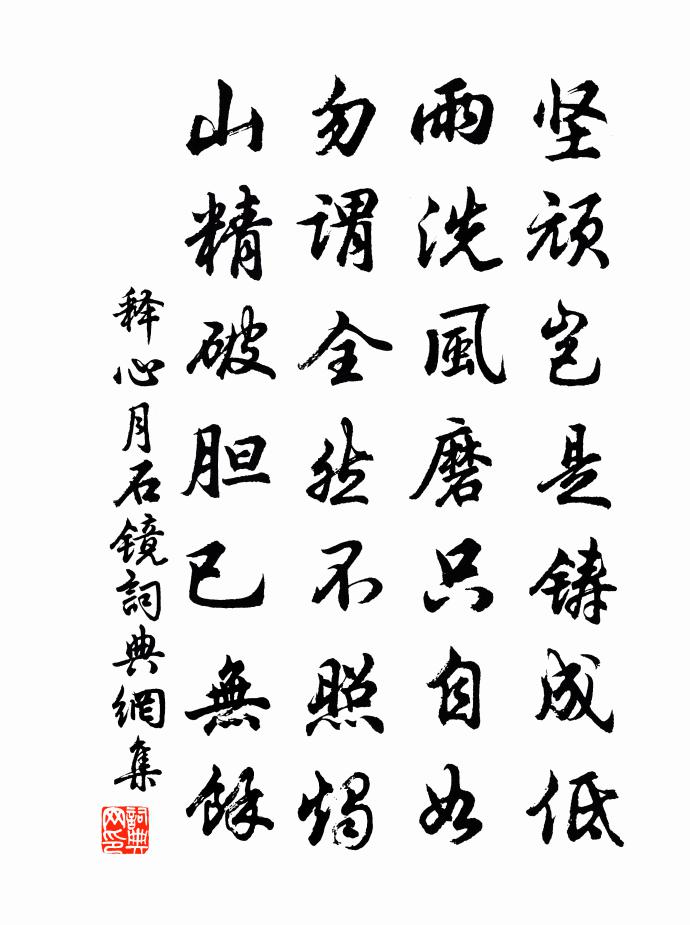 坚顽岂是铸成低
雨洗風磨只自如
勿谓全然不照烛
山精破胆已無馀
释心月石镜詞典網集
詞典网印